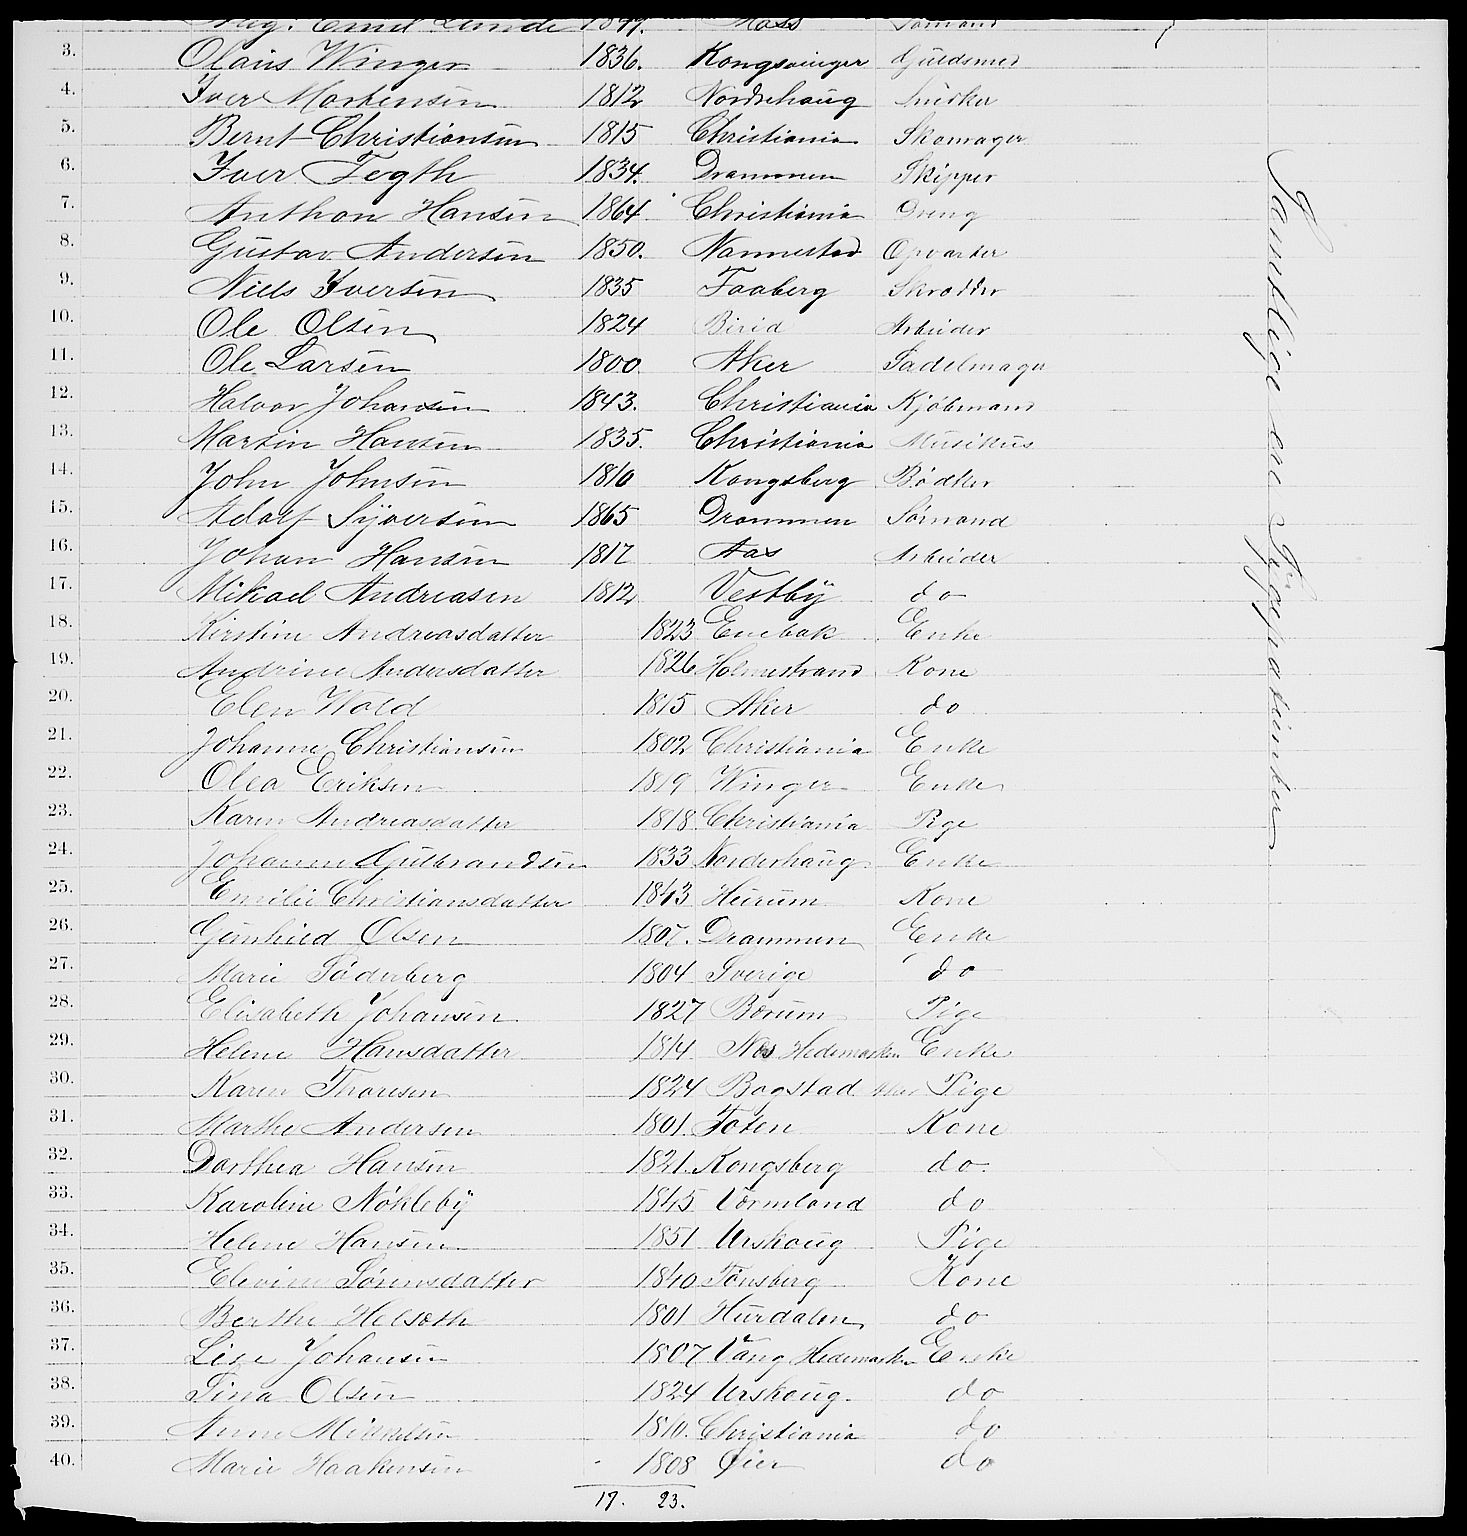 Aug. Emil Lunde 1849. Moss Sømand
3. Olaus Winger 1836. Kongsvinger Guldsmed
4. Iver Mortensen 1812 Nordrehaug Snedker
5. Bernt Christiansen 1815 Christiania Skomager
6. Iver Fegth 1834. Drammen Skipper
7. Anthon Hansen 1864. Christiania Dreng
8. Gustav Andersen 1850. Nannestad Opvarter
9. Niels Iversen 1835 Faaberg Skrædder
10. Ole Olsen 1824 Birid Arbeider
11. Ole Larsen 1800 Aker Sadelmager
12. Halvor Johansen 1843. Christiania Kjøbmand
13. Martin Hansen 1835. Christiania Musikus
14. John Johnsen 1810 Kongsberg Bødker
15. Adolf Syversen 1865 Drammen Sømand
16. Johan Hansen 1817 Aas Arbeider
17. Mikael Andreasen 1812 Vestby do
18. Kirstine Andreasdatter 1823 Enebak Enke
19. Andrine Andersdatter 1826 Holmestrand Kone
20. Elen Wold 1815 Aker do
21. Johanne Christiansen 1802 Christiania Enke
22. Olea Eriksen 1819 Winger Enke
23. Karen Andreasdatter 1818. Christiania Pige
24. Johanne Gulbrandsen 1833 Norderhaug Enke
25. Emilie Christiansdatter 1843 Heurum Kone
26. Gunhild Olsen 1807. Drammen Enke
27. Marie Søderberg 1804 Sverige do
28. Elisabeth Johansen 1827 Bærum Pige
29. Helene Hansdatter 1814 Næs Hedemarken Enke
30. Karen Thoresen 1824 Bogstad Aker Pige
31. Marthe Andersen 1801. Toten Kone
32. Dorthea Hansen 1821. Kongsberg do.
33. Karoline Nøkleby 1845 Värmland do
34. Helene Hansen 1851 Urskoug Pige
35. Elevine Sørensdatter 1840 Tønsberg Kone
36. Berthe Helsæth 1801 Hurdalen do
37. Lise Johansen 1807 Vang Hedemarken Enke
38. Tina Olsen 1824 Urskoug. do
39. Anne Mikkelsen 1810. Christiania do
40. Marie Haakensen 1808 Øier do
17. 23.
Samtlige ere Sygepatienter